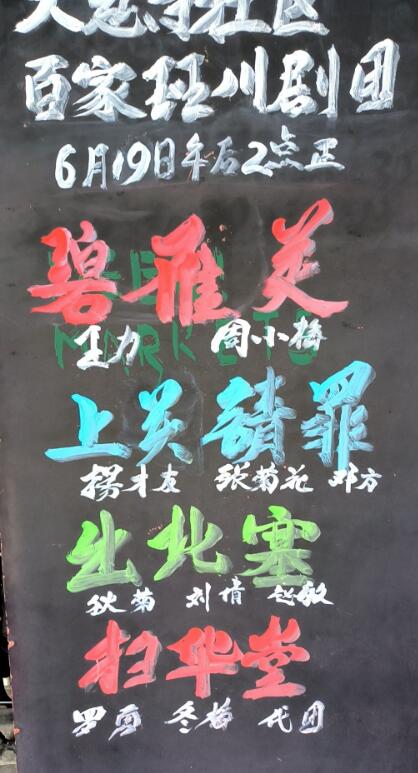 大慈寺社区
百家班川剧团
6月19日午后2点正
碧雁
MARKETS
王力 周小梅
上关請罪
楊才友 张菊花 邓方
出北塞
狄菊 刘 赵敏
扫华堂
罗 冬梅 代团